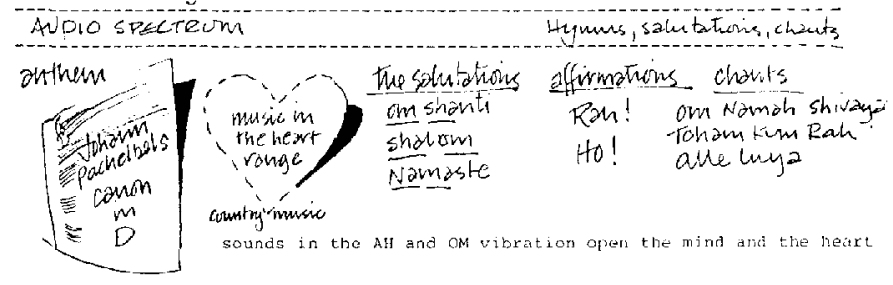 AUDIO SPECTRUM
Hymns, salutations, chants
anthem
Johann
Pachelbels
canon
in
D
music in
the heart
range
country music
the salutations
om shanti
shalom
Namaste
affirmations
Rah!
Ho!
chants
om Namah Shivaya
Toham Kum Rah
alle luya
sounds in the AH and OM vibration open the mind and the heart